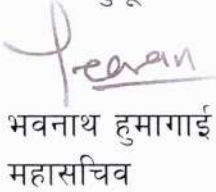 भवनाथ हुमागाई
महासचिव